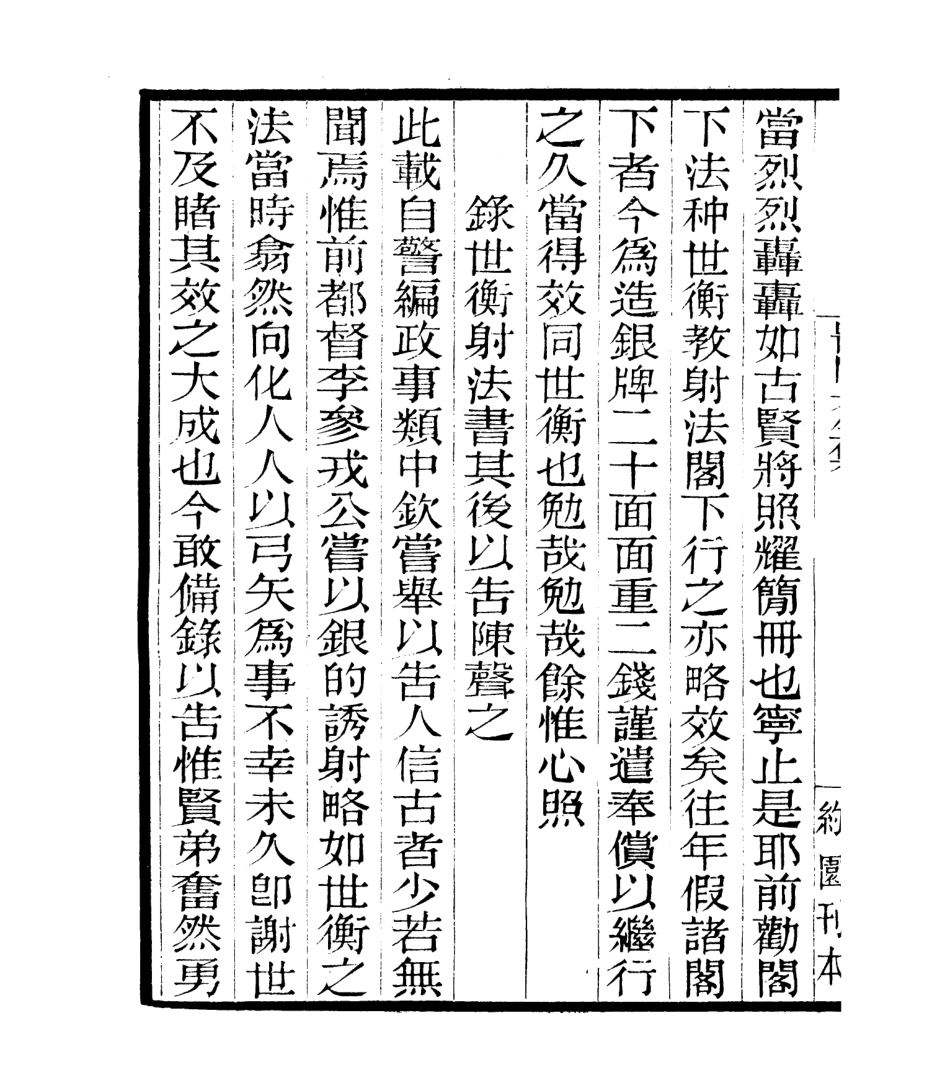 當烈烈轟轟如古賢將照耀簡冊也寧止是耶前勸閣
下法种世衡教射法閣下行之亦略效矣往年假諸閣
下者今爲造銀牌二十面面重二錢謹遣奉償以繼行
之久當得效同世衡也勉哉勉哉餘惟心照
錄世衡射法書其後以告陳聲之
此載自警編政事類中欽嘗舉以告人信古者少若無
聞焉惟前都督李參戎公嘗以銀的誘射略如世衡之
法當時翕然向化人人以弓矢爲事不幸未久卽謝世
不及睹其效之大成也今敢備錄以告惟賢弟奮然勇
約園刊本